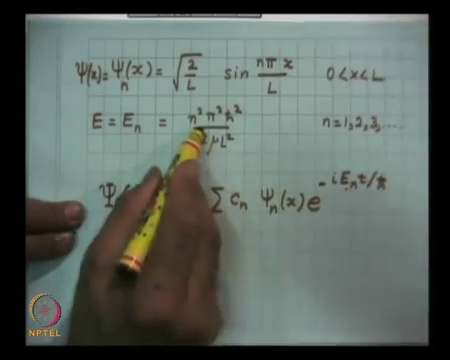 Ψ(x) = Ψn(x) = √(2/L) sin nπx/L 0 < x < L
E = En = n²π²ħ²/2μL² n = 1, 2, 3, ....
Ψ( Σ Cn Ψn(x) e^-iEnt/ħ
NPTEL